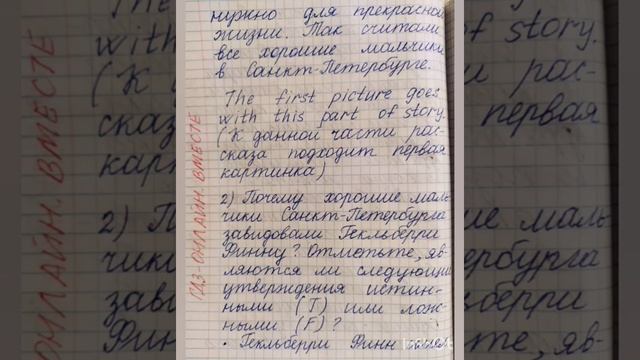 нужно для прекрасной
жизни. Так считали
все хорошие мальчики
в Санкт-Петербурге.
The first picture goes
with this part of story.
(К данной части рас-
сказа подходит первая
картинка)
2) Почему хорошие маль-
чики Санкт-Петербурга
завидовали Гекльберри
Финну? Отметьте, яв-
ляются ли следующие
утверждения истин-
ными (T) или лож-
ными (F)?
• Гекльберри Финн
ГДЗ-ОНЛАЙН. ВМЕСТЕ